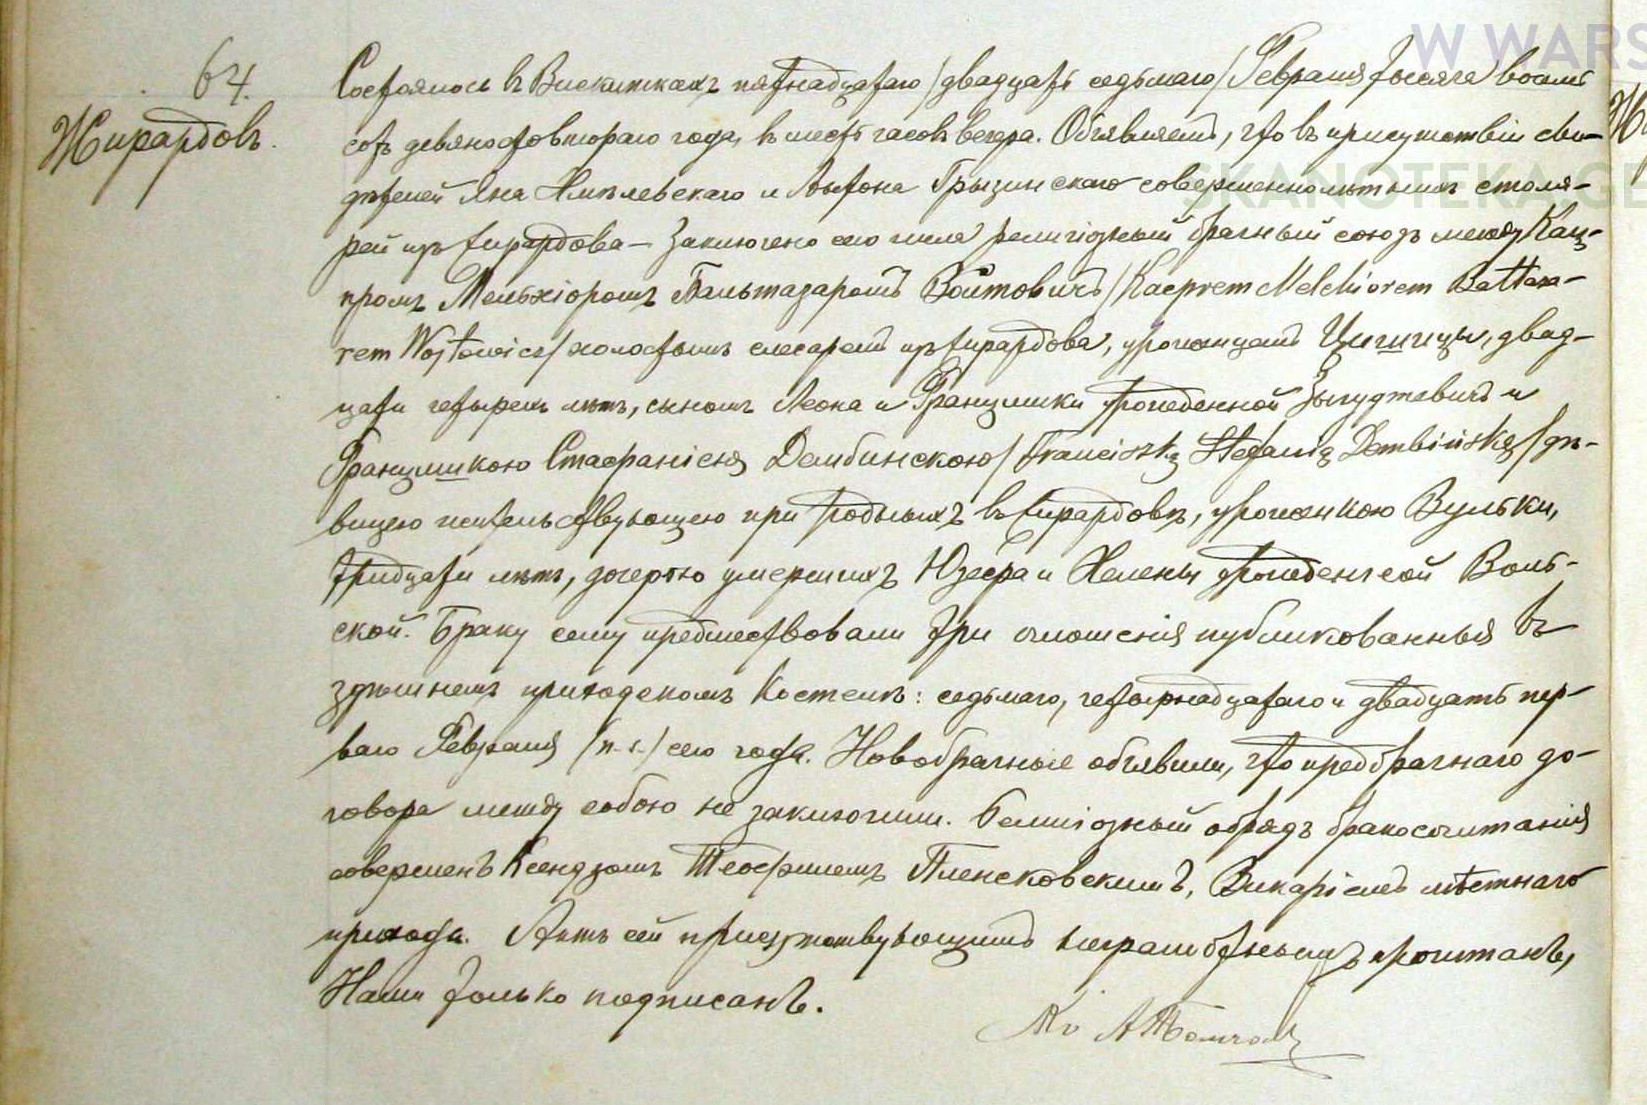 W WARS
SKANOTEKA.GE
64.
Жирардовъ.
Состоялось въ Вискиткахъ пятнадцатаго /двадцать седьмаго/ Февраля тысяча восемь
сотъ девяносто втораго года, въ шесть часовъ вечера. Объявляемъ, что въ присутствіи сви-
дѣтелей Яна Хмѣлевскаго и Антона Грызинскаго совершеннолѣтнихъ столя-
рей изъ Жирардова — заключено сего числа религіозный брачный союзъ между Кац-
промъ Мельхіоромъ Бальтазаромъ Войтовичъ /Kacprem Melchiorem Baltaza-
rem Wojtowicz/ холостымъ слесаремъ изъ Жирардова, уроженцемъ двад-
цати четырехъ лѣтъ, сыномъ Леона и Францишки урожденной и
Францишкою Стефаніею Дембинскою /Franciszką Stefanią Dembińską/ дѣ-
вицею жительствующею при родныхъ въ Жирардовѣ, уроженкою Вульки,
тридцати лѣтъ, дочерью умершихъ Юзефа и Хелены урожденной Воль-
ской. Браку сему предшествовали три оглашенія публикованныя въ
здѣшнемъ приходскомъ Костелѣ: седьмаго, четырнадцатаго и двадцать пер-
ваго Февраля /н. с./ сего года. Новобрачные объявили, что предбрачнаго до-
говора между собою не заключили. Религіозный обрядъ бракосочитанія
совершенъ Ксендзомъ Теофилемъ Пленсковскимъ, Викаріемъ мѣстнаго
прихода. Актъ сей присутствующимъ неграмотнымъ прочитанъ,
Нами только подписанъ.